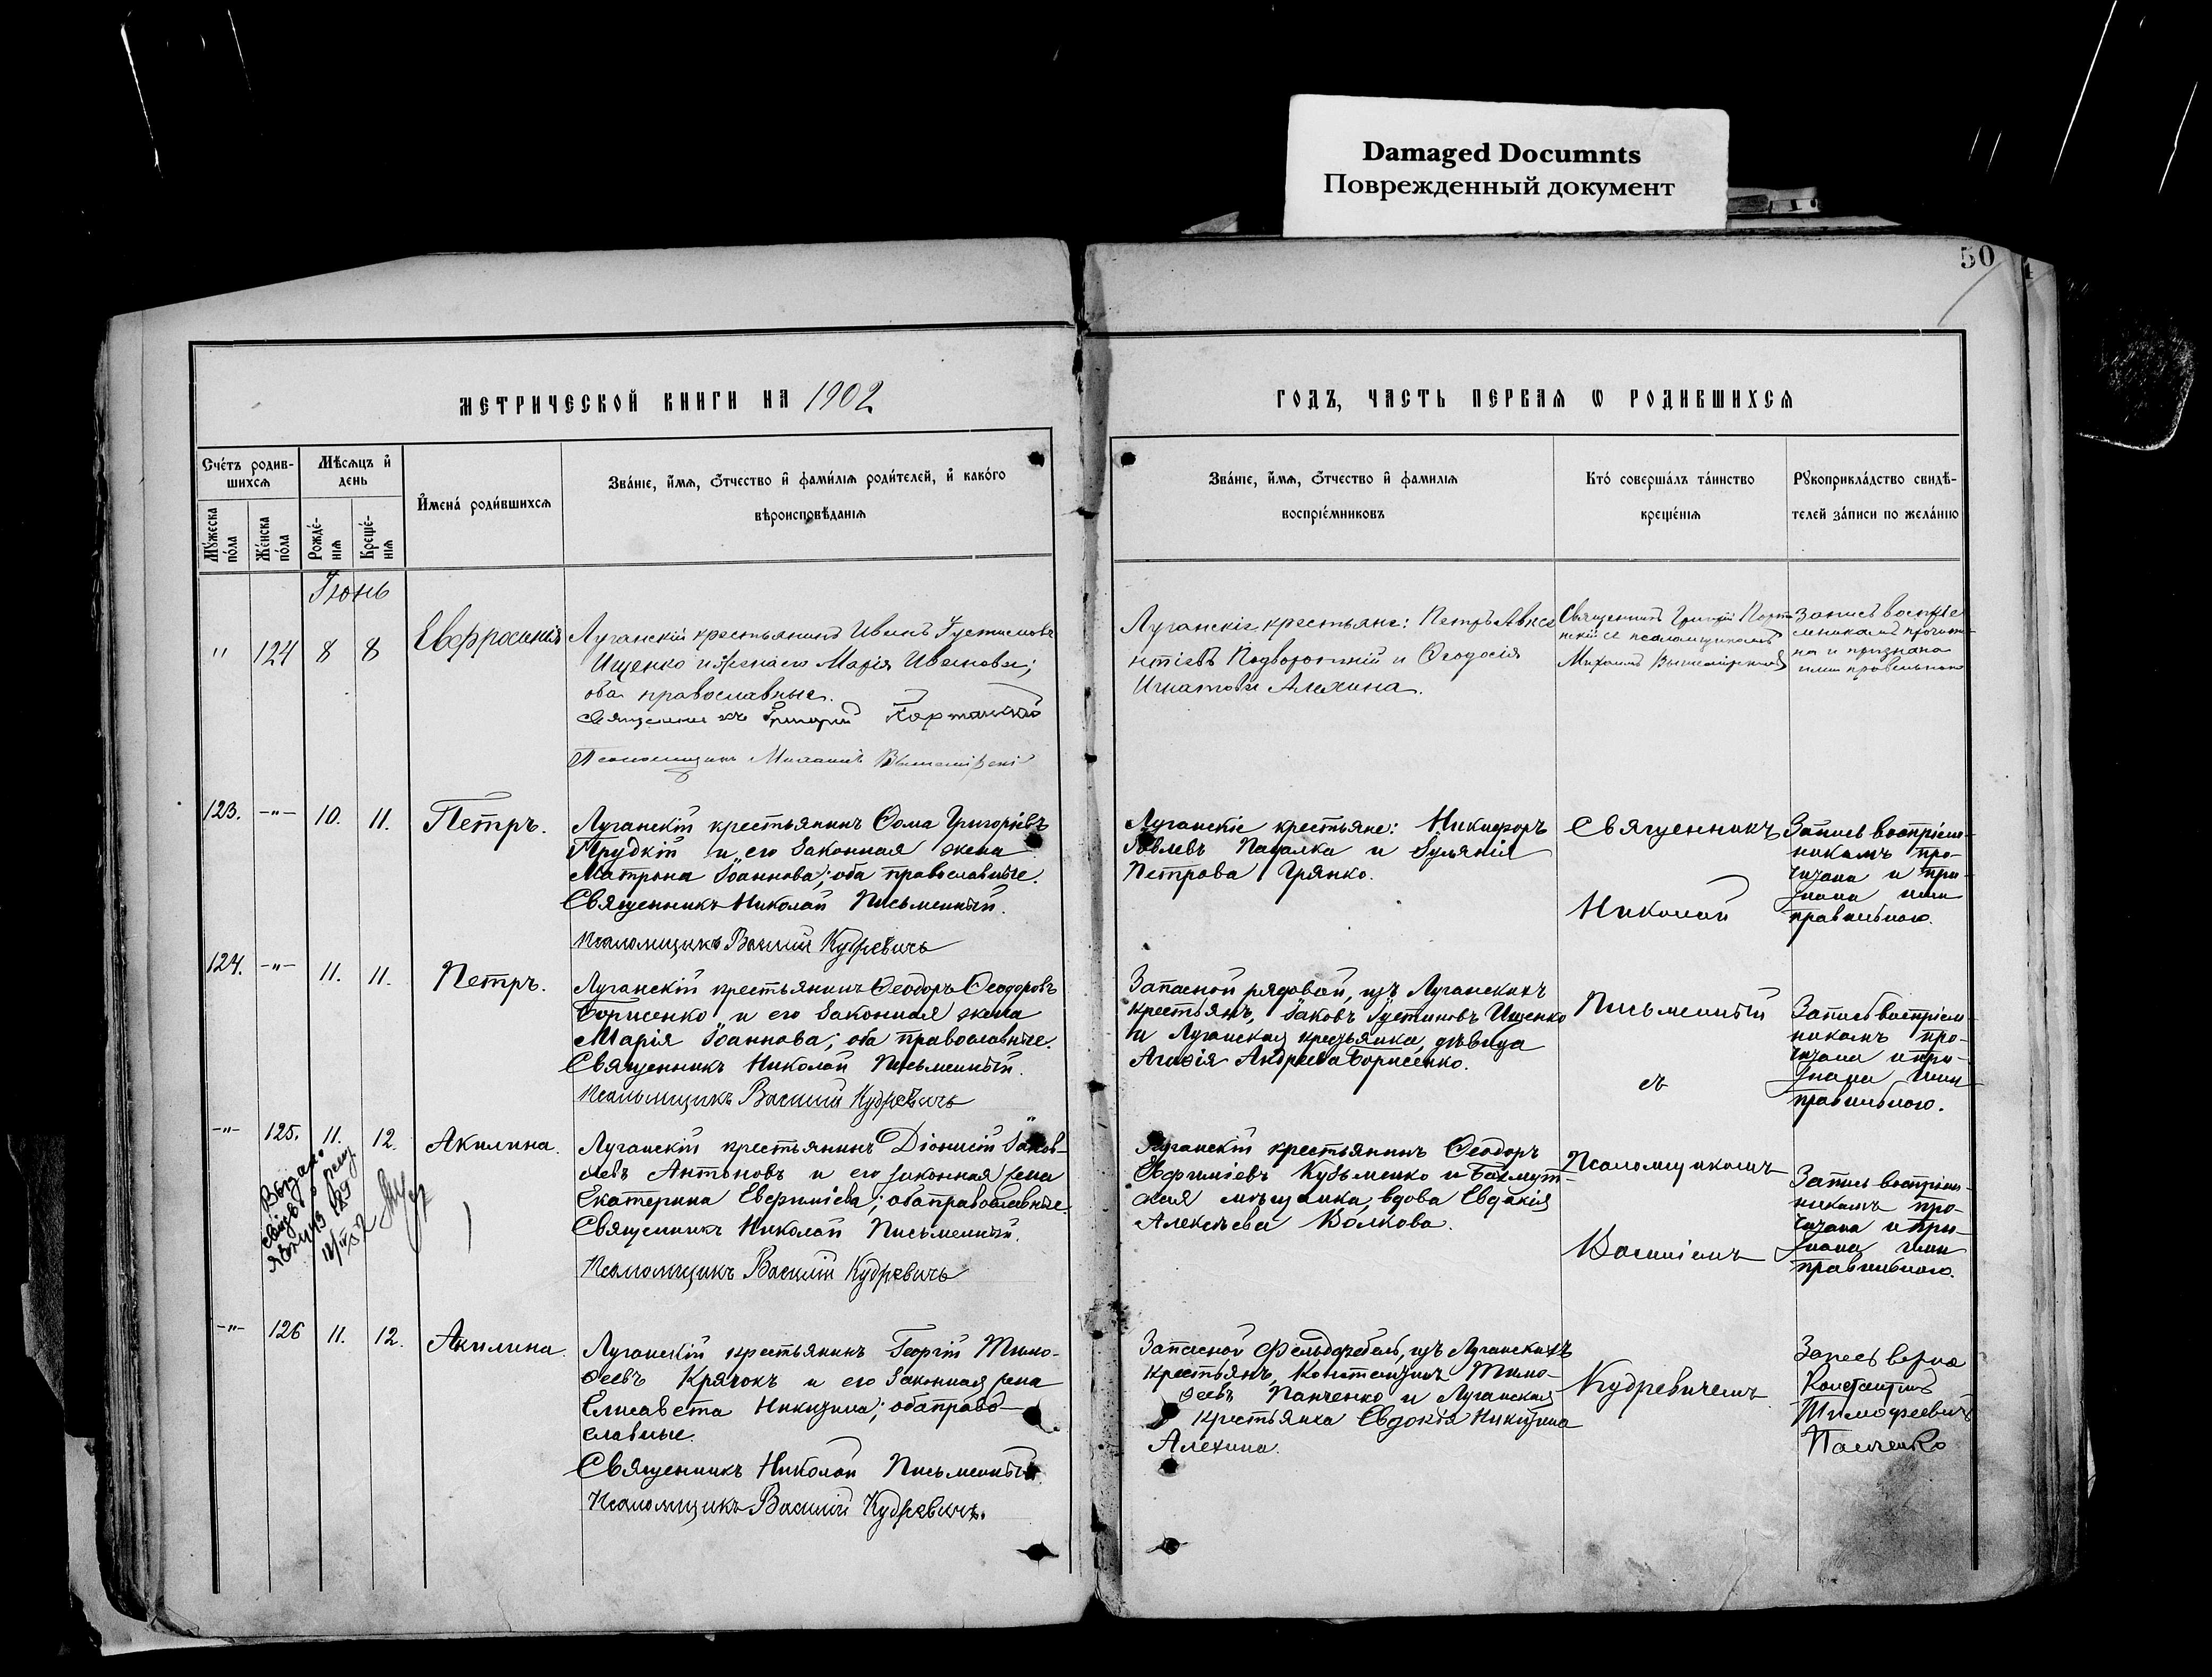 Damaged Documnts
Поврежденный документ
50
МЕТРИЧЕСКОЙ КНИГИ НА 1902
ГОДЪ, ЧАСТЬ ПЕРВАЯ Ѡ РОДИВШИХСЯ
Счетъ родив-
шихся
Мужеска пола
Женска пола
Мѣсяцъ и
день
Рожде-
нія
Креще-
нія
Имена родившихся
Званіе, имя, отчество и фамилія родителей, и какого
вѣроисповѣданія
Званіе, имя, отчество и фамилія
воспріемниковъ
Кто совершалъ таинство
крещенія
Рукоприкладство свидѣ-
телей записи по желанію
Іюнь
" 124 8 8 Евфросинія
Луганскій крестьянинъ Иванъ Густиновъ
Ищенко и жена его Марія Иванова;
оба православные.
Священникъ Григорій
Псаломщикъ Михаилъ
Луганскіе крестьяне: Петръ Авксе
нтіевъ Подворотній и Ѳеодосія
Игнатова Алехина.
Священникъ Григорій
съ псаломщикомъ
Михаиломъ
Запись воспріе
мникамъ прочита-
на и признана
ими правильною
123. -"- 10. 11. Петръ.
Луганскій крестьянинъ Ѳома Григоріевъ
Прудкій и его законная жена
Матрона Іоаннова; оба православные.
Священникъ Николай Письменный.
Псаломщикъ Василій Кудревичъ
Луганскіе крестьяне: Никифоръ
Іовлевъ и Іуліанія
Петрова Грянко.
Священникъ
Николай
Запись воспріем-
никамъ про-
читана и при-
знана ими
правильною.
124. -"- 11. 11. Петръ.
Луганскій крестьянинъ Ѳеодоръ Ѳеодоровъ
Борисенко и его законная жена
Марія Іоаннова; оба православные.
Священникъ Николай Письменный.
Псаломщикъ Василій Кудревичъ
Запасной рядовой, изъ Луганскихъ
крестьянъ, Іаковъ Іустиновъ Ищенко
и Луганская крестьянка, дѣвица
Агафія Андреева Борисенко.
Письменный
съ
Запись воспріем-
никамъ про-
читана и при-
знана ими
правильною.
-"- 125. 11. 12. Акилина.
Выдано
Луганскій крестьянинъ Діонисій Іаков-
левъ Антоновъ и его законная жена
Екатерина Евфиміева; оба православные.
Священникъ Николай Письменный.
Псаломщикъ Василій Кудревичъ
Луганскій крестьянинъ Ѳеодоръ
Евфиміевъ Кузьменко и Бахмут-
ская мѣщанка, вдова Евдокія
Алексѣева Волкова.
Псаломщикомъ
Василіемъ
Запись воспріем-
никамъ про-
читана и при-
знана ими
правильною.
-"- 126 11. 12. Акилина.
Луганскій крестьянинъ Георгій Тимо-
ѳеевъ Крячокъ и его законная жена
Елисавета Никитина; оба право-
славные.
Священникъ Николай Письменный
Псаломщикъ Василій Кудревичъ.
Запасной Фельдфебель, изъ Луганскихъ
крестьянъ, Константинъ Тимо-
ѳеевъ Панченко и Луганская
крестьянка Евдокія Никитина
Алехина.
Кудревичемъ
Запесь верна
Константинъ
Тимофеевичъ
Панченко